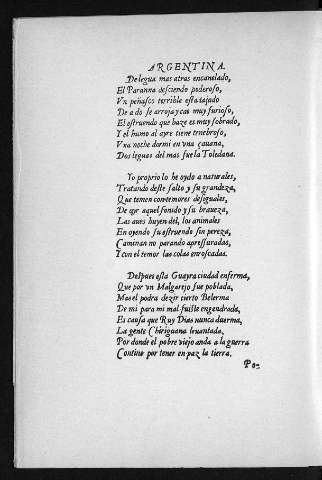 ARGENTINA.
De legua mas atras encanelado,
El Paranna desciendo poderoso,
Vn peñasco terrible esta tajado
De a do se arroja y cae muy furioso,
El estruendo que haze es muy sobrado,
Y el humo al ayre tiene tenebroso,
Vna noche dormi en vna çauana,
Dos leguas del mas fue la Toledana.
Yo proprio lo he oydo a naturales,
Tratando deste salto y su grandeza,
Que temen con temores desiguales,
De oyr aquel sonido y su braueza,
Las aues huyen del, los animales
En oyendo su estruendo sin pereza,
Caminan no parando apressuradas,
I con el temor las colas enroscadas.
Despues esta Guayra ciudad enferma,
Que por vn Malgarejo fue poblada,
Mas el podra dezir cierto Belerma
De mi para mi mal fuiste engendrada,
Es causa que Ruy Dias nunca duerma,
La gente Chiriguana leuantada,
Por donde el pobre viejo anda a la guerra
Contino por tener en paz la tierra.
Po-